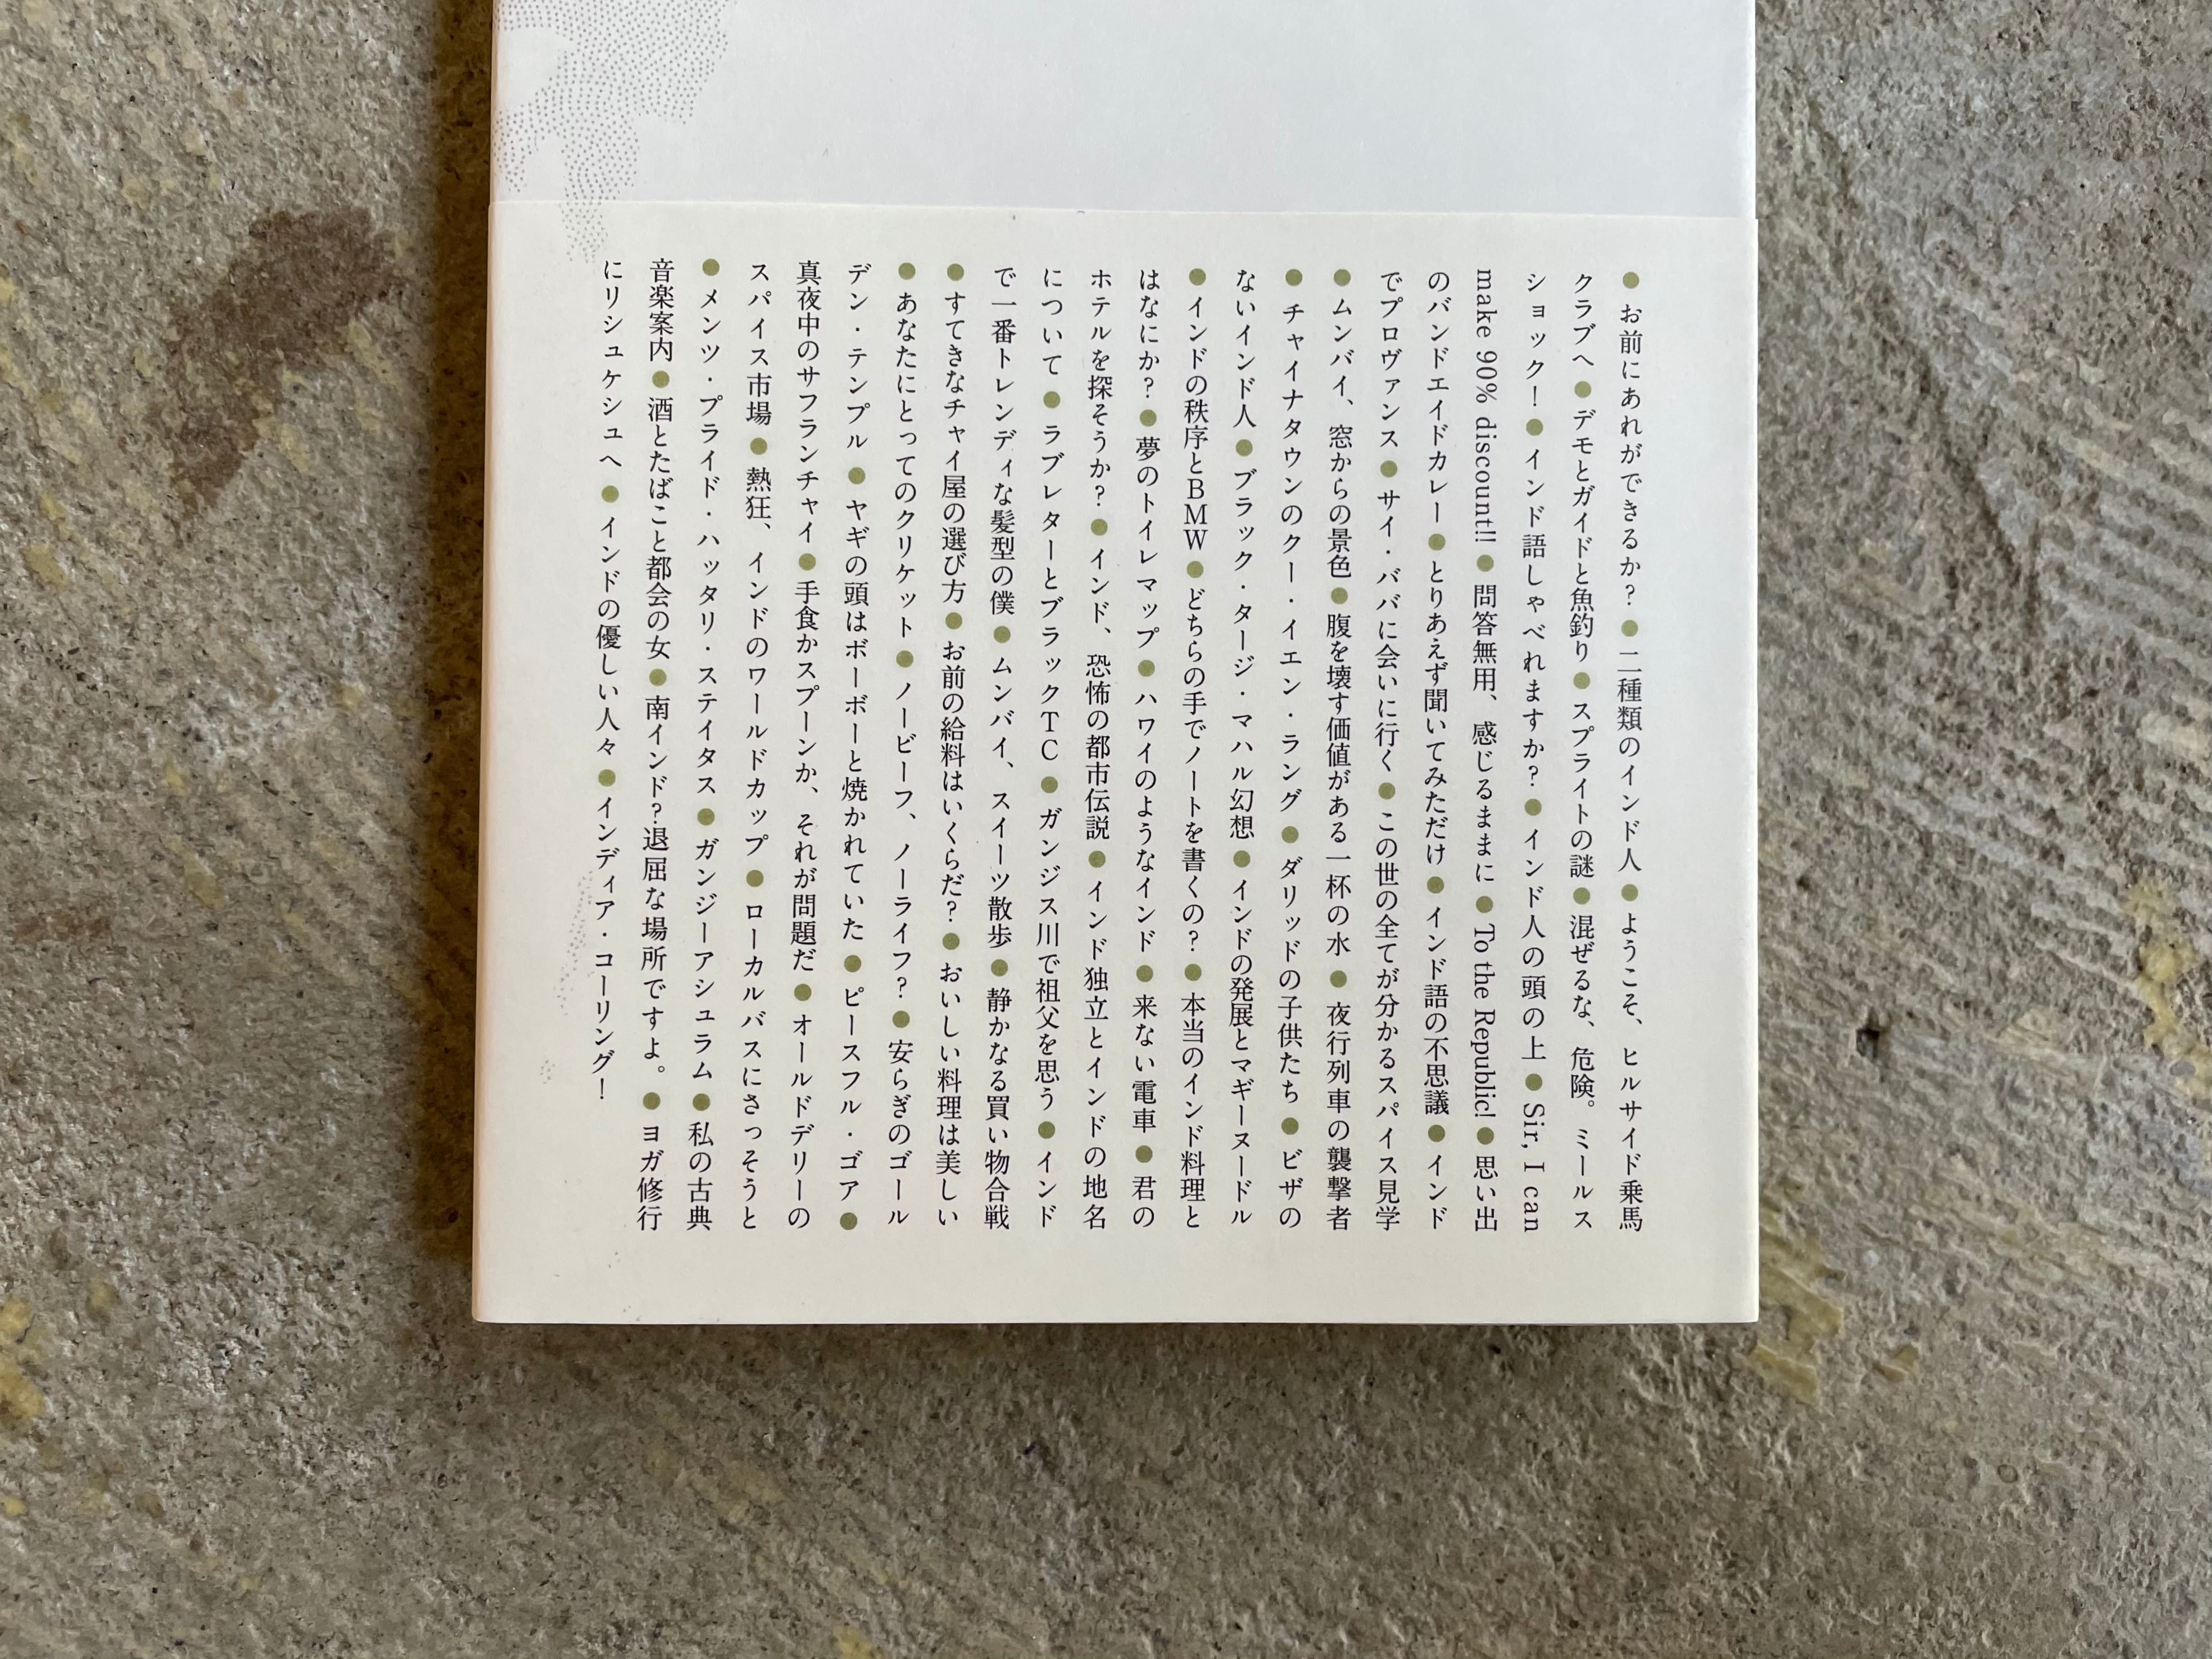 ● お前にあれができるか？ ● 二種類のインド人 ● ようこそ、ヒルサイド乗馬
クラブへ ● デモとガイドと魚釣り ● スプライトの謎 ● 混ぜるな、危険。ミールス
ショック！ ● インド語しゃべれますか？ ● インド人の頭の上 ● Sir, I can
make 90% discount!! ● 問答無用、感じるままに ● To the Republic! ● 思い出
のバンドエイドカレー ● とりあえず聞いてみただけ ● インド語の不思議 ● インド
でプロヴァンス ● サイ・ババに会いに行く ● この世の全てが分かるスパイス見学
● ムンバイ、窓からの景色 ● 腹を壊す価値がある一杯の水 ● 夜行列車の襲撃者
● チャイナタウンのクー・イエン・ラング ● ダリッドの子供たち ● ビザの
ないインド人 ● ブラック・タージ・マハル幻想 ● インドの発展とマギーヌードル
● インドの秩序とBMW ● どちらの手でノートを書くの？ ● 本当のインド料理と
はなにか？ ● 夢のトイレマップ ● ハワイのようなインド ● 来ない電車 ● 君の
ホテルを探そうか？ ● インド、恐怖の都市伝説 ● インド独立とインドの地名
について ● ラブレターとブラックTC ● ガンジス川で祖父を思う ● インド
で一番トレンディな髪型の僕 ● ムンバイ、スイーツ散歩 ● 静かなる買い物合戦
● すてきなチャイ屋の選び方 ● お前の給料はいくらだ？ ● おいしい料理は美しい
● あなたにとってのクリケット ● ノービーフ、ノーライフ？ ● 安らぎのゴール
デン・テンプル ● ヤギの頭はボーボーと焼かれていた ● ピースフル・ゴア ●
真夜中のサフランチャイ ● 手食かスプーンか、それが問題だ ● オールドデリーの
スパイス市場 ● 熱狂、インドのワールドカップ ● ローカルバスにさっそうと
● メンツ・プライド・ハッタリ・ステイタス ● ガンジーアシュラム ● 私の古典
音楽案内 ● 酒とたばこと都会の女 ● 南インド？退屈な場所ですよ。 ● ヨガ修行
にリシュケシュへ ● インドの優しい人々 ● インディア・コーリング！